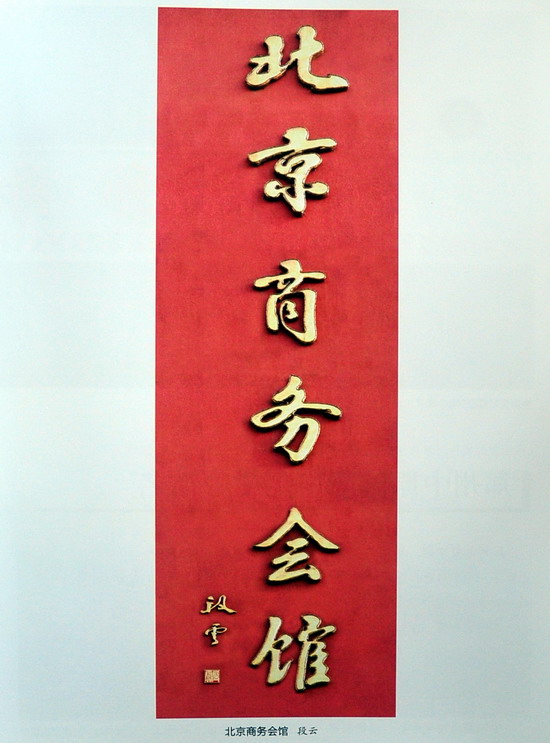 北京商务会馆
段雲
北京商务会馆 段云